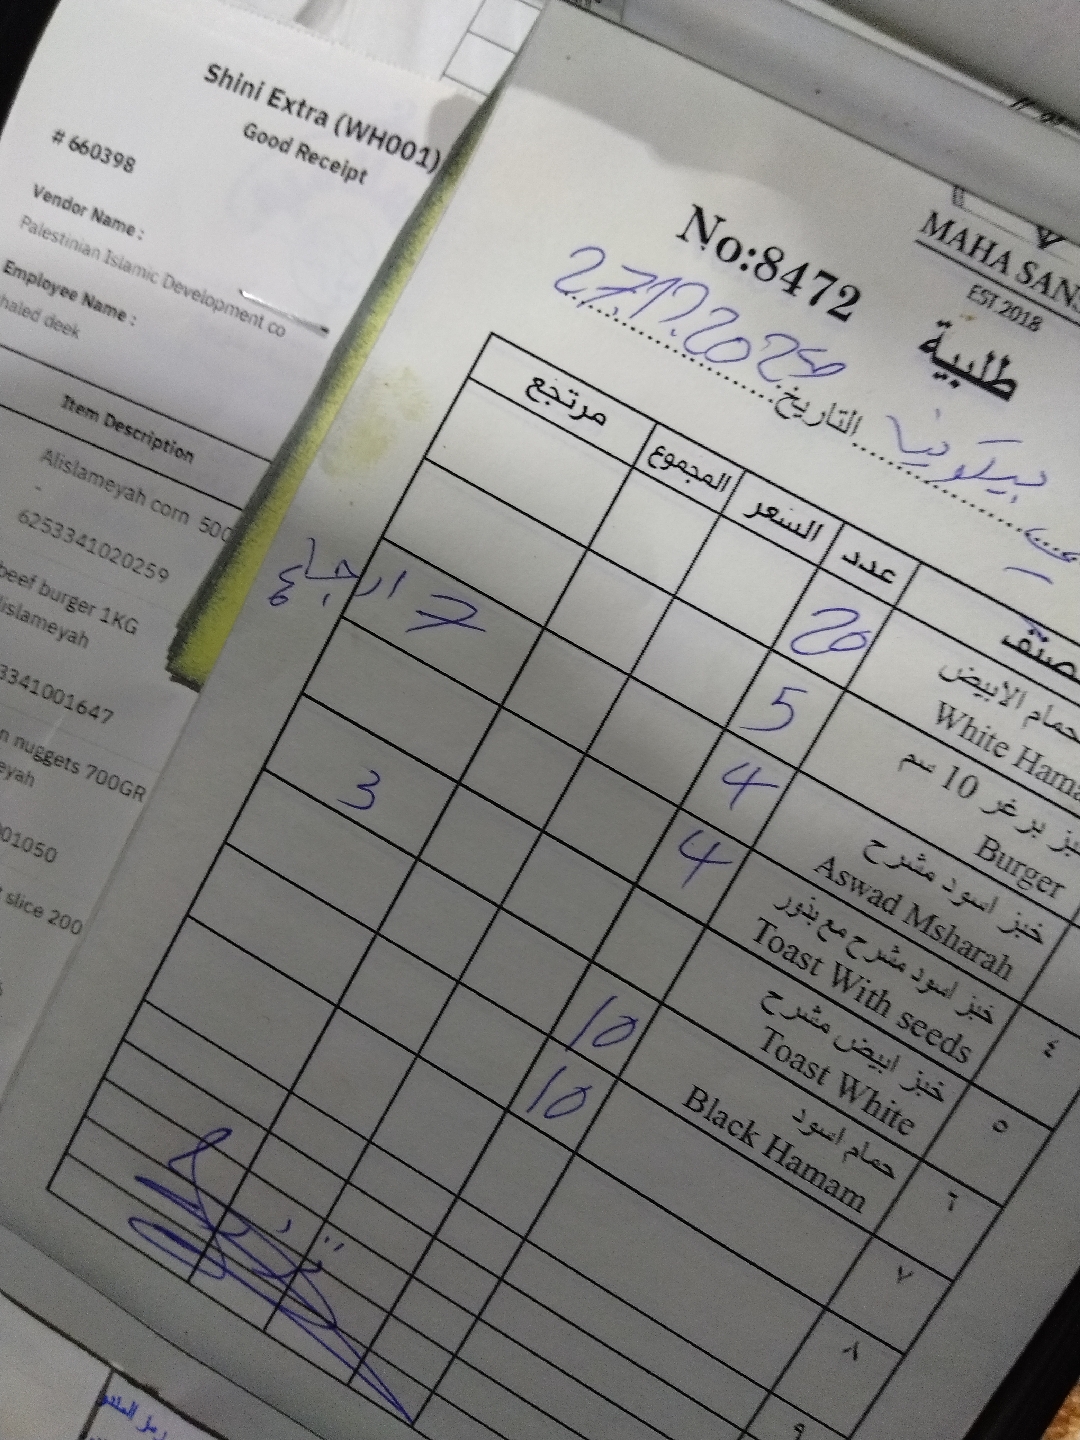 Shini Extra (WH001)
Good Receipt
# 660398
Vendor Name :
Palestinian Islamic Development co
Employee Name :
haled deek
Item Description
Alislameyah corn 500
6253341020259
beef burger 1KG
lislameyah
3341001647
n nuggets 700GR
eyah
01050
t slice 200
MAHA SANS
EST.2018
No:8472
طلبية
التاريخ
عدد
السعر
المجموع
مرتجع
حمام الابيض
White Hama
20
بز برغر 10 سم
Burger
5
خبز اسود مشرح
Aswad Msharah
4
7 ارجاع
٤
خبز اسود مشرح مع بذور
Toast With seeds
4
٥
خبز ابيض مشرح
Toast White
3
٦
حمام اسود
Black Hamam
10
٧
10
٨
٩